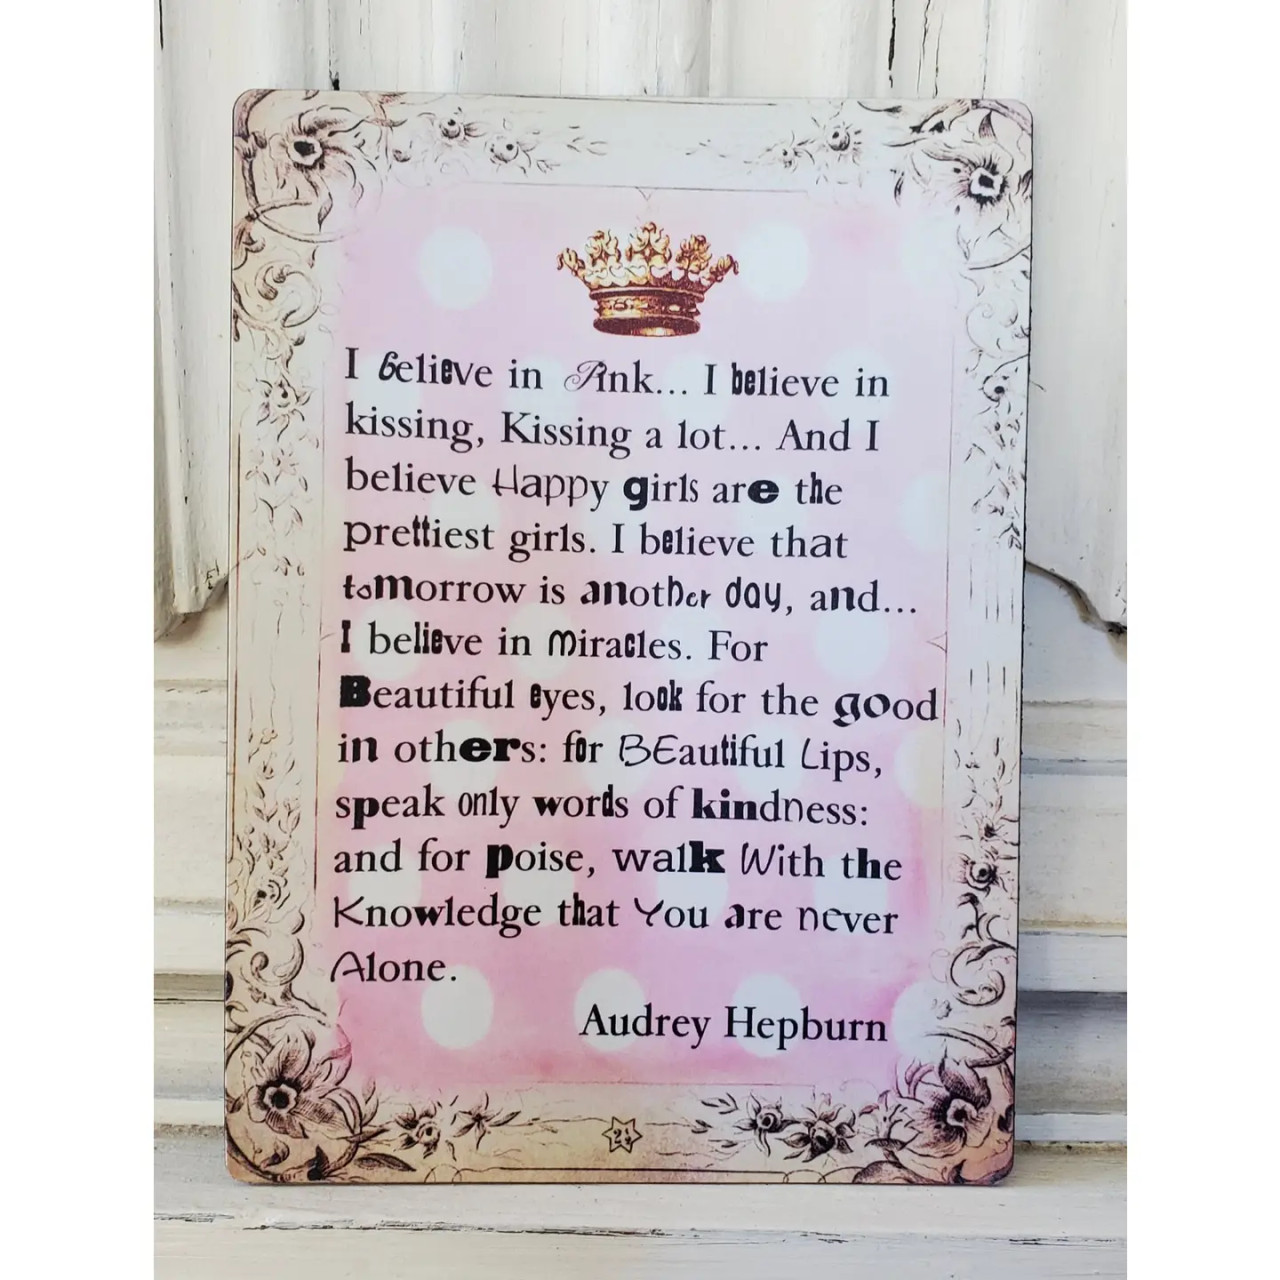 I believe in Pink... I believe in
kissing, Kissing a lot... And I
believe Happy girls are the
prettiest girls. I believe that
tomorrow is another day, and...
I believe in Miracles. For
Beautiful eyes, look for the good
in others: for BEautiful Lips,
speak only words of kindness:
and for poise, walk With the
Knowledge that You are never
Alone.
Audrey Hepburn